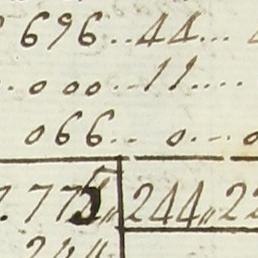 696..44...
.000..11....
066..0...0
.775,,244,,22
244